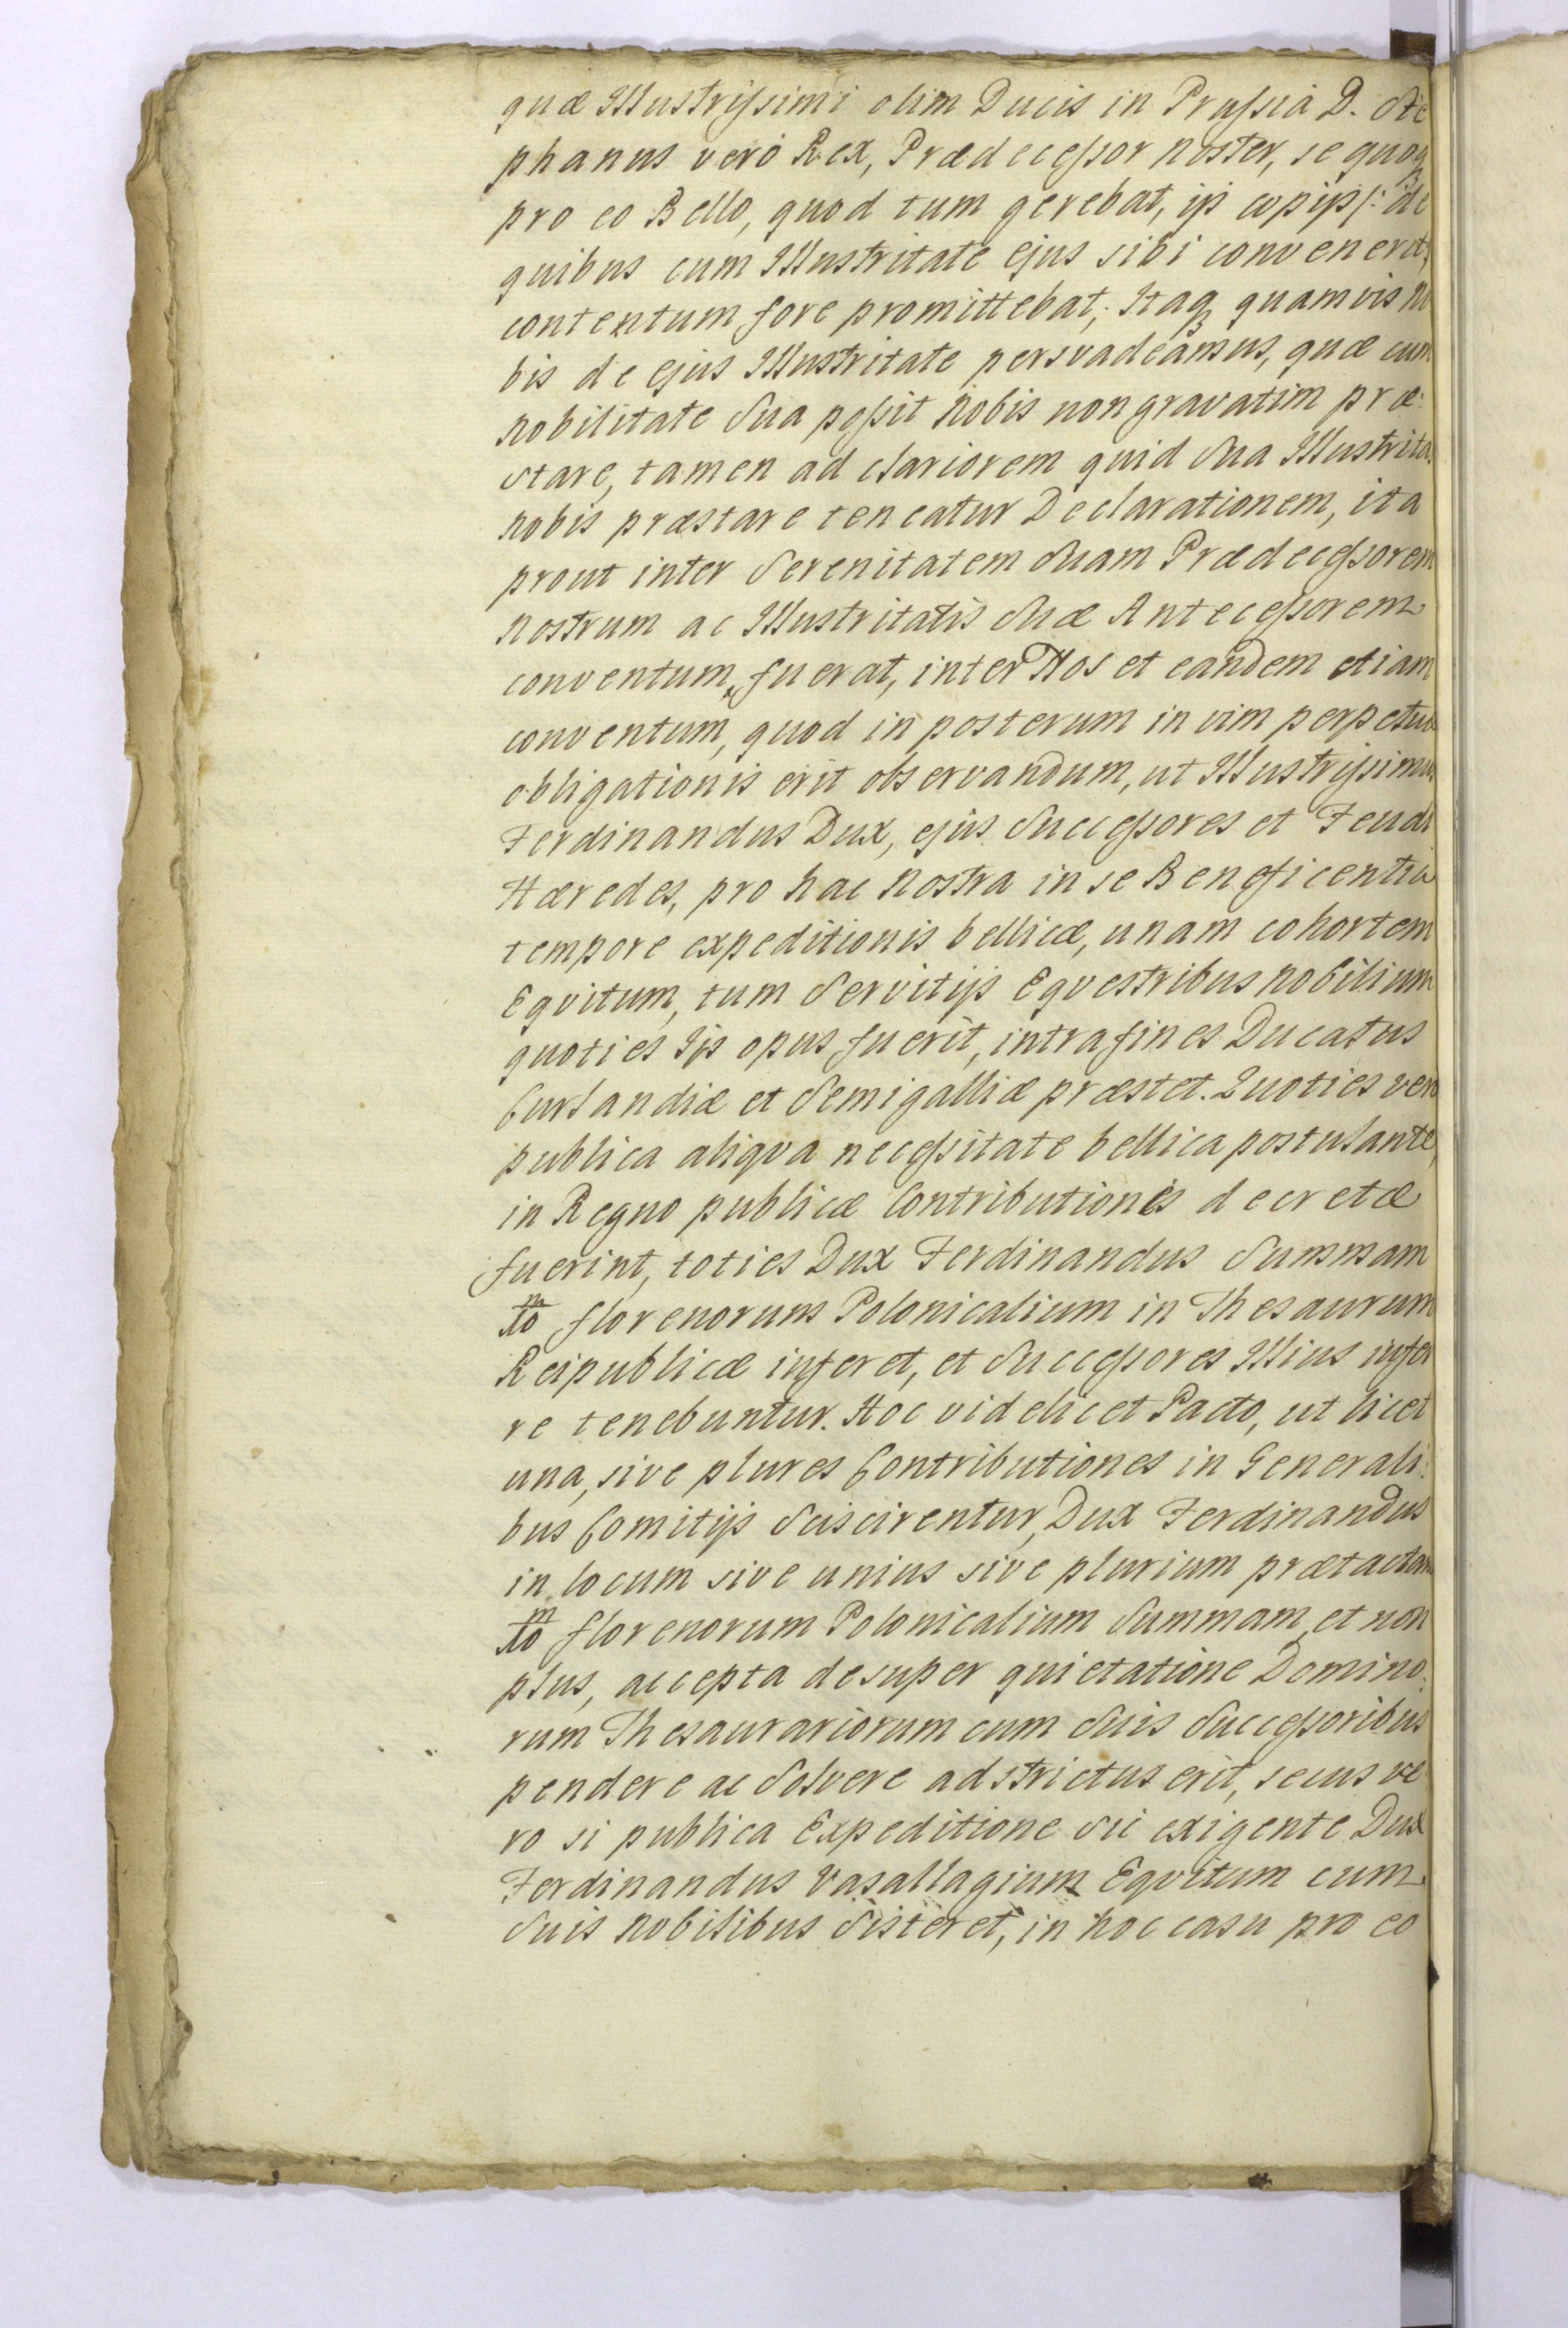 quæ Illustrissimi olim Ducis in Prussiâ D. Ste
phanus verò Rex, Prædecessor Noster, se quoq
pro eo Bello, quod tum gerebat, ijs copijs /: de
quibus cum Illustritate ejus sibi convenerat,
contentum fore promittebat; Itaq quamvis No
bis de ejus Illustritate persvadeamus, quæ cum
Nobilitate Sua possit Nobis non gravatim præ:
stare, tamen ad clariorem quid Sua Illustritas
Nobis præstare teneatur Declarationem, ita
prout inter Serenitatem Suam Prædecessorem
Nostrum ac Illustritatis Suæ Antecessorem
conventum fuerat, inter Nos et eandem etiam
conventum, quod in posterum in vim perpetuæ
obligationis erit observandum, ut Illustrissimus
Ferdinandus Dux, ejus Successores et Feudi
Hæredes, pro hac Nostra in se Beneficentia
tempore expeditionis bellicæ, unam cohortem
Eqvitum, tum Servitijs Eqvestribus Nobilium
quoties Ijs opus fuerit, intra fines Ducatus
Curlandiæ et Semigalliæ præstet. Quoties vero
publica aliqva necessitate bellica postulante,
in Regno publicæ Contributiones decretæ
fuerint, toties Dux Ferdinandus Summam
10 m florenorum Polonicalium in Thesaurum
Reipublicæ inferet, et Successores Illius infer
re tenebuntur. Hoc videlicet Pacto, ut licet
una, sive plures Contributiones in Generali:
bus Comitijs Sciscirentur, Dux Ferdinandus
in locum sive unius sive plurium prætactam
10 m florenorum Polonicalium Summam, et non
plus, accepta desuper quietatione Domino:
rum Thesaurariorum cum Suis Successoribus
pendere ac Solvere adstrictus erit, secus ve
ro si publica Expeditione Sic exigente Dux
Ferdinandus Vasallagium Eqvitum cum
Suis Nobilibus Sisteret, in hoc casu pro eo